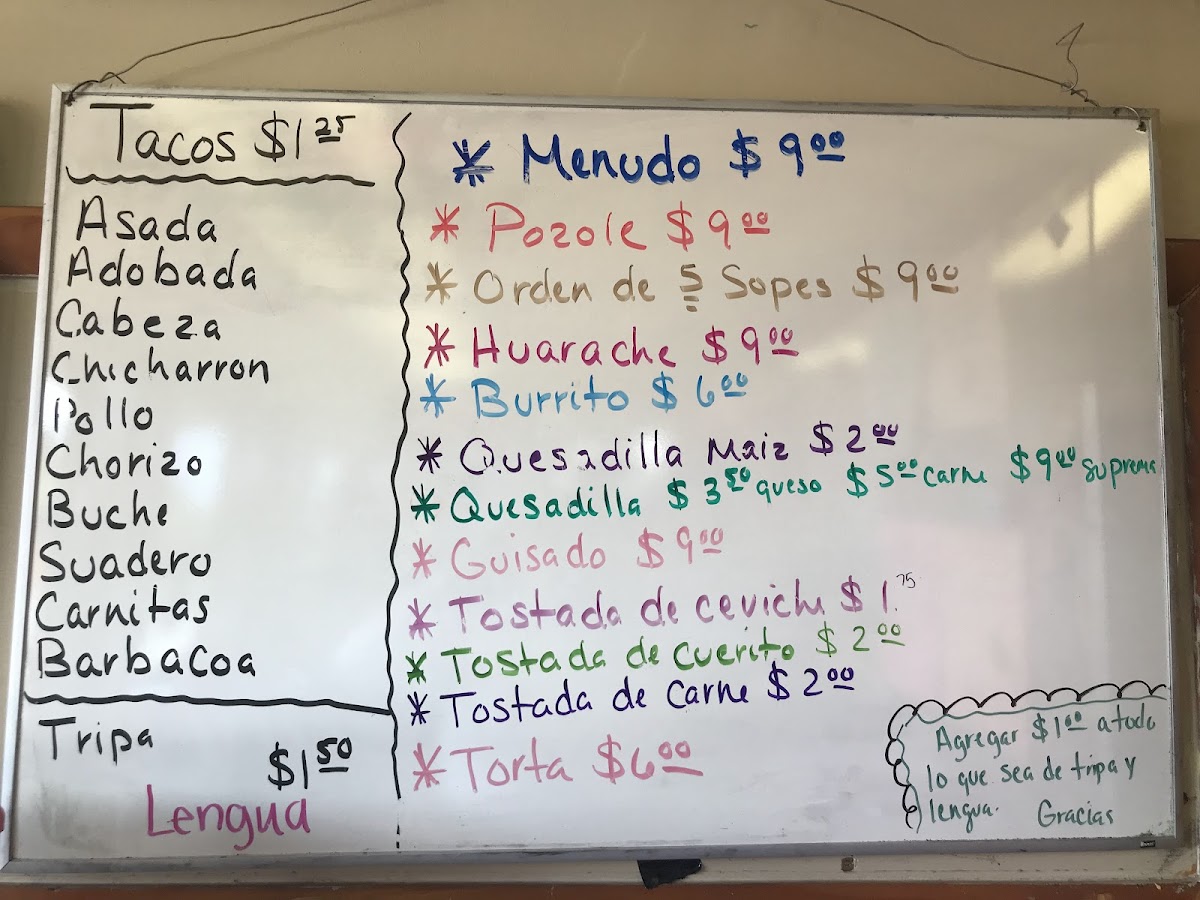 Tacos $1.25
Asada
Adobada
Cabeza
Chicharron
Pollo
Chorizo
Buche
Suadero
Carnitas
Barbacoa
Tripa
$1.50
Lengua
* Menudo $9.00
* Pozole $9.00
* Orden de 5 Sopes $9.00
* Huarache $9.00
* Burrito $6.00
* Quesadilla Maiz $2.00
* Quesadilla $3.50 queso $5.00 carne $9.00 suprema
* Guisado $9.00
* Tostada de ceviche $1.75
* Tostada de cuerito $2.00
* Tostada de Carne $2.00
* Torta $6.00
Agregar $1.00 a todo
lo que sea de tripa y
lengua. Gracias